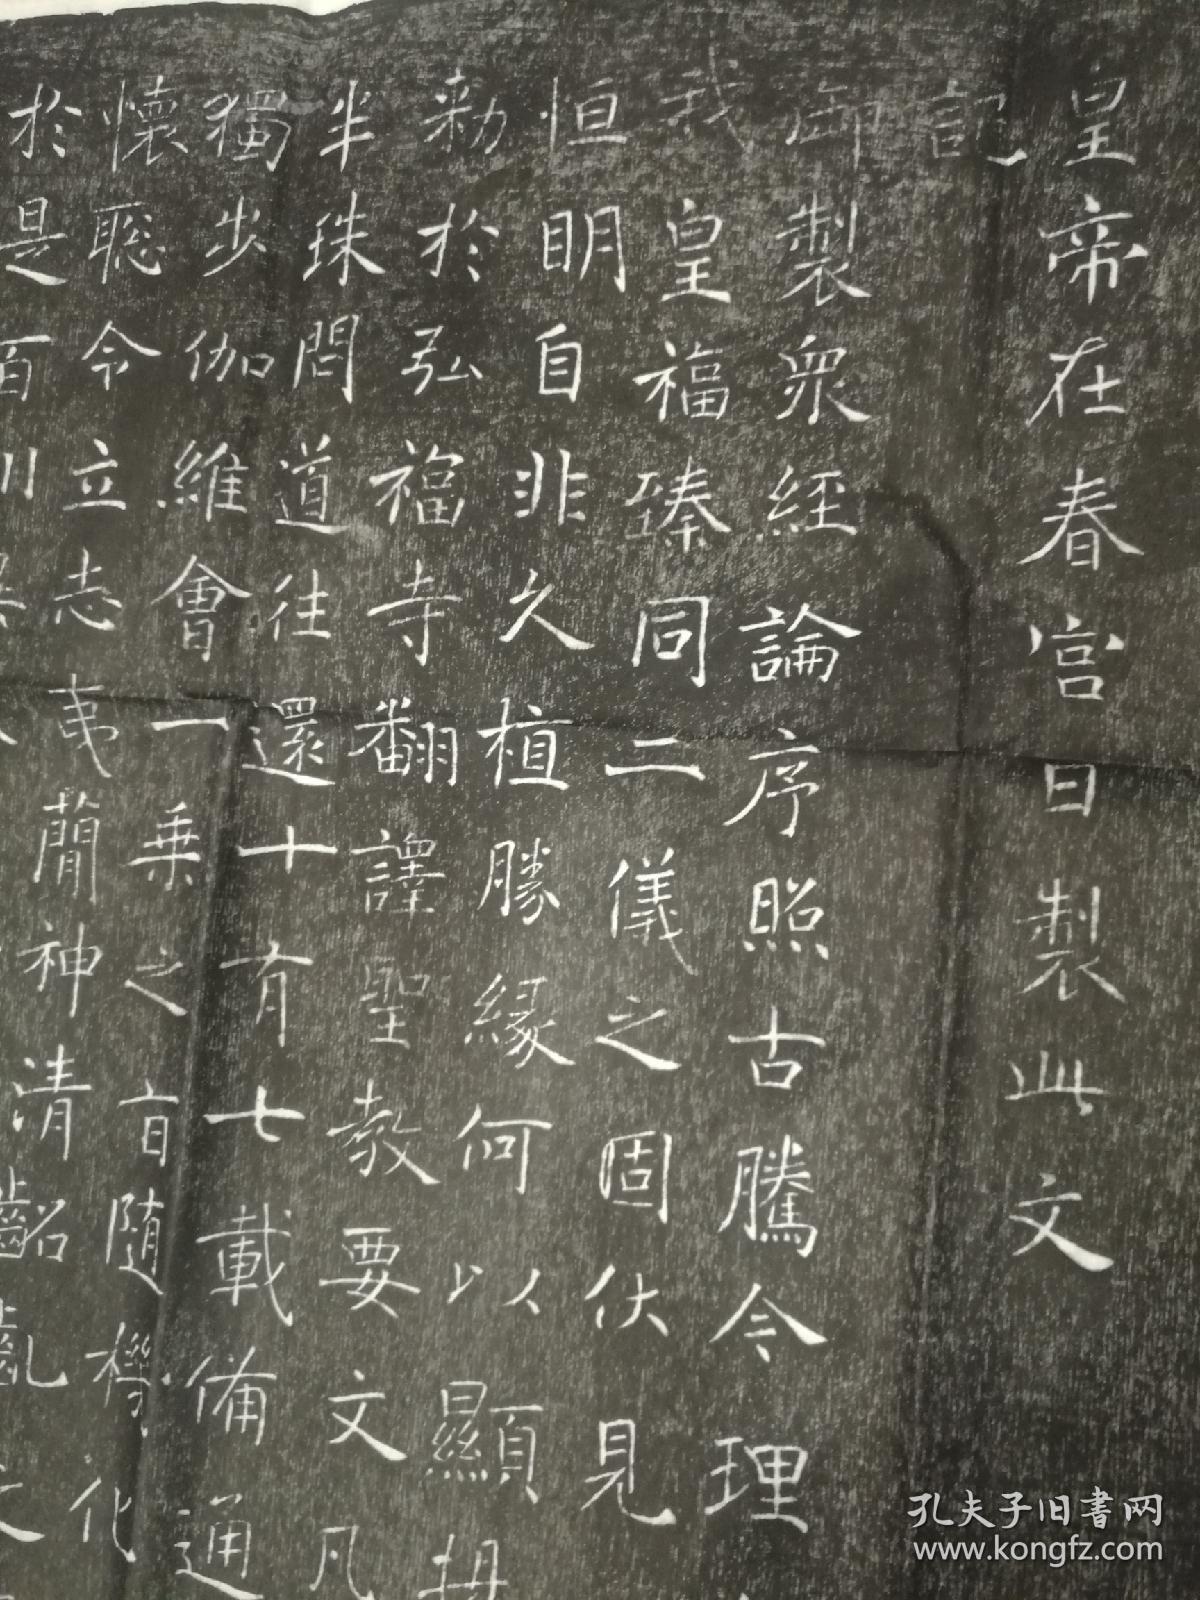 皇帝在春宮日製此文
記
御製衆經論序照古騰今理
我皇福臻同二儀之固伏見
恒明自非久植勝緣何以顯
勑於弘福寺翻譯聖教要文凡
半珠問道往還十有七載備通
獨步伽維會一乘之旨隨機化
懷聰令立志夷蕳神清齠齔之
於是百川
孔夫子旧书网
www.kongfz.com